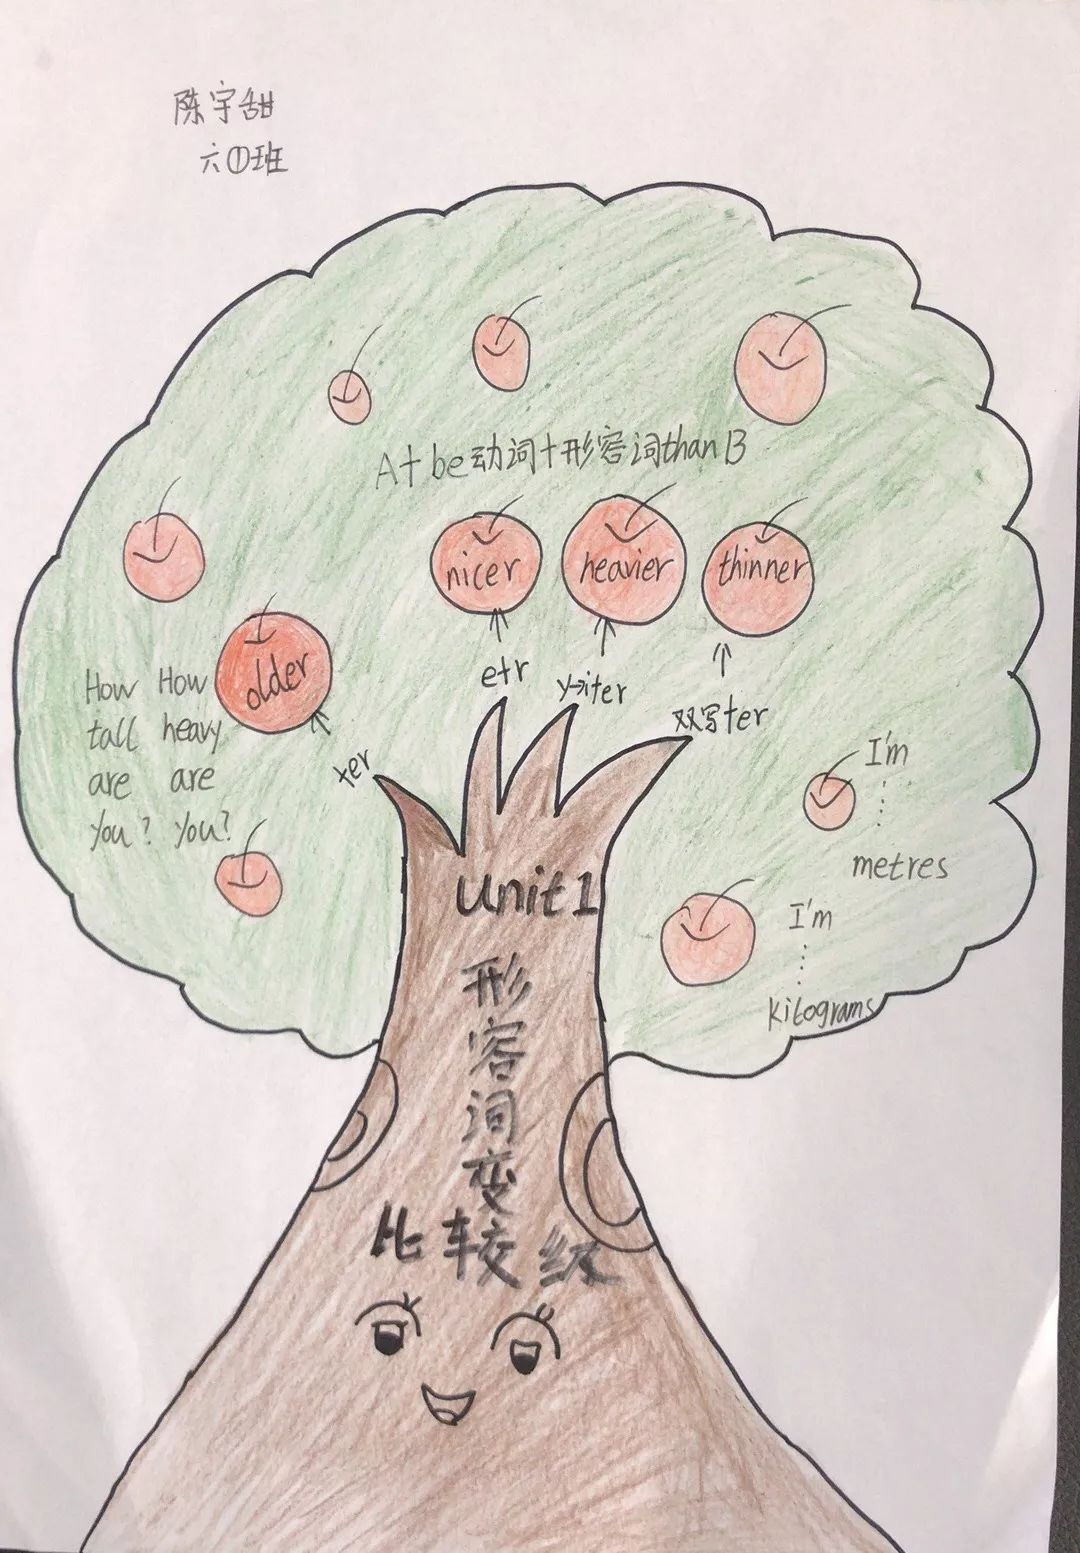 陈宇甜
六①班
A+be动词+形容词thanB
nicer
heavier
thinner
e+r
y→i+er
双写+er
older
+er
How
tall
are
you?
How
heavy
are
you?
I'm
......
metres
I'm
......
kilograms
Unit1
形
容
词
变
比较级